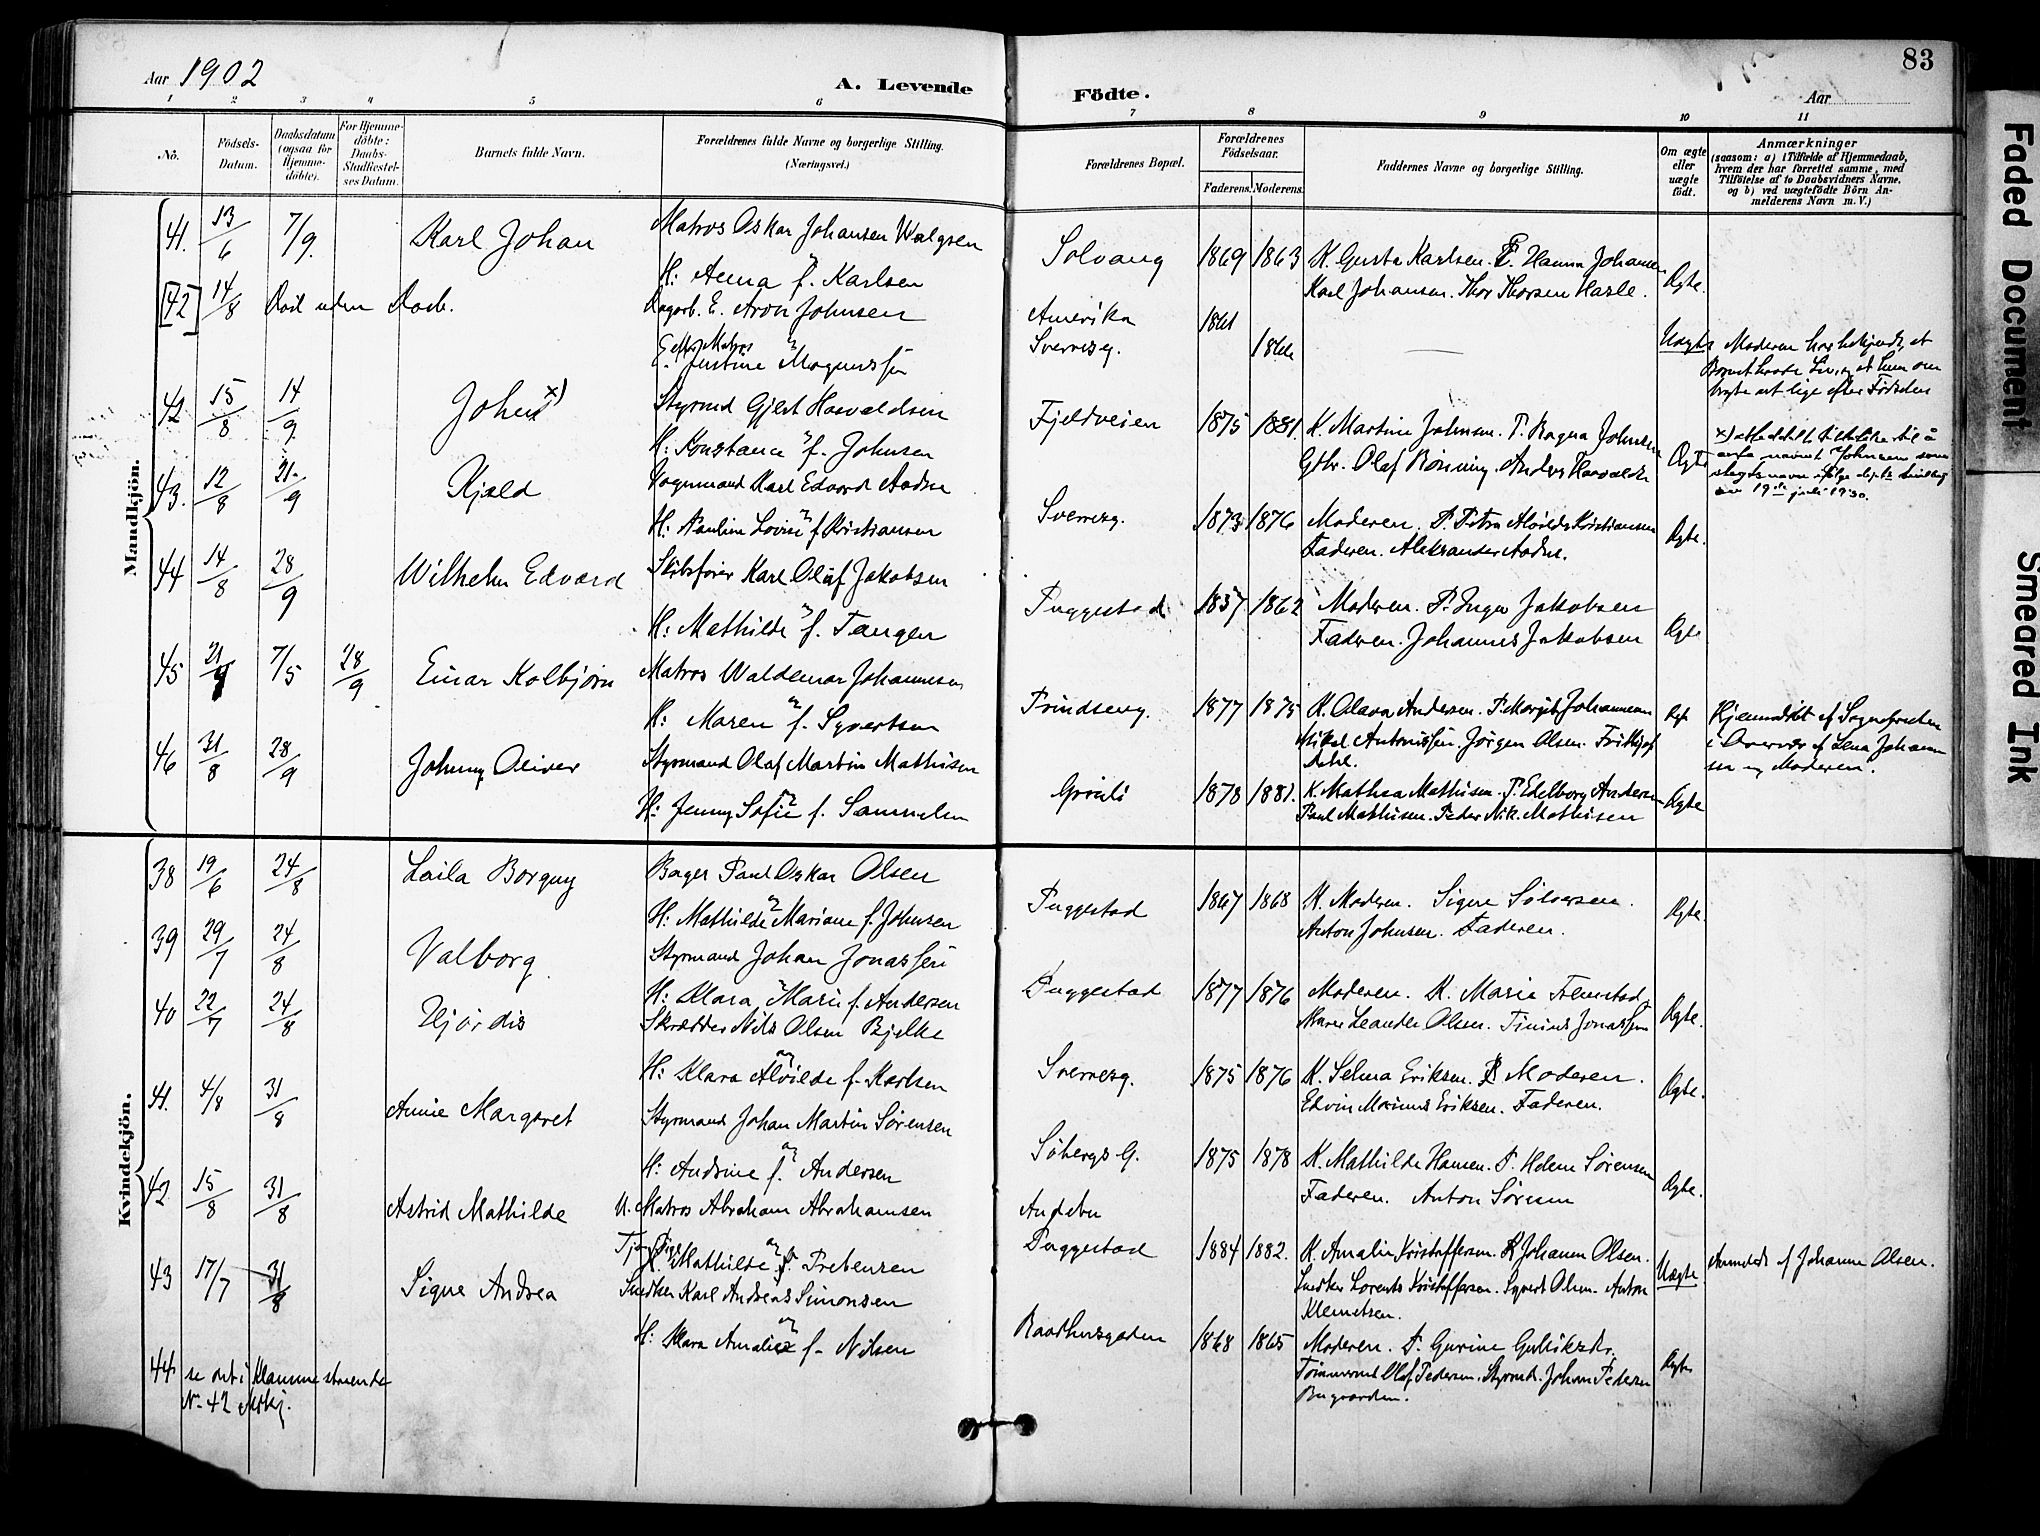 Aar 1902
A. Levende
Födte.
83
Aar
1 2 3 4 5 6 7 8 9 10 11
No.
Födsels-Datum.
Daabsdatum (ogsaa for Hjemme-döbte).
For Hjemme-döbte: Daabs-Stadfæstel-ses Datum.
Barnets fulde Navn.
Forældrenes fulde Navne og borgerlige Stilling. (Næringsvei.)
Forældrenes Bopæl.
Forældrenes Födselsaar.
Faderens. Moderens.
Faddernes Navne og borgerlige Stilling.
Om ægte eller uægte födt.
Anmærkninger
(saasom: a) i Tilfælde af Hjemmedaab,
hvem der har forrettet samme, med
Tilföielse af to Daabsvidners Navne,
og b) ved uægtefödte Börn An-
melderens Navn m. V.)
Mandkjön.
41. 13/6 7/9. Karl Johan Matros Oskar Johansen Walgsen
H: Anna f. Karlsen
Solvang 1869 1863 K. Gusta Karlsen. P. Hanna Johansen
Karl Johansen. Thor Thorsen Hasle. Ægte.
[42] 14/8 Död uden Daab. Dagarb. E. Aron Johnsen
E. Justine Magnussen
Amerika
Sverresg.
1861 1866 Uægte Moderen har bekjendt, at
Barnet havde Liv, og at hun om
bragte det lige efter Födselen
42 15/8 14/9 John x) Styrmd Gjert Havaldsen
H: Konstance f. Johnsen
Fjeldveien 1875 1881. K. Martine Johnsen. P. Ragna Johnsen
Gbr. Olaf Rönning. Anders Havalds Ægte
som
slegtsnavn ifölge
av 19de juli 1930.
43. 12/8 21/9 Kjeld Vognmand Karl Edvard Aadne
H: Pauline Lovise f. Kristiansen
Sverresg. 1873 1876 Moderen. P. Petra Alvilde Kristiansen
Faderen. Aleksander Aadne. Ægte.
44 14/8 28/9 Wilhelm Edvard Skibsförer Karl Oluf Jakobsen
H: Mathilde f. Tangen
Puggestad 1857 1862 Moderen. P. Inga Jakobsen
Faderen. Johannes Jakobsen Ægte
45 21/4 7/5 28/9 Einar Kolbjörn Matros Waldemar Johannesen
H: Maren f. Syvertsen
Prindseng. 1877 1875 K. Olava Andersen. P. Margit Johannesen
Mikal Antonissen. Jörgen Olsen. Frithjof
Dahl. Ægt. Hjemmedöbt af Sognepresten
i Overvær af Lena Johanne
sen og Moderen.
46 31/8 28/9 Johnny Oliver Styrmand Olaf Martin Mathisen
H: Jenny Sofie f. Samuelsen
Grönli 1878 1881. K. Mathea Mathisen. P. Edelborg Andersen
Paul Mathisen. Peder Nik. Mathisen Ægte.
Kvindekjön.
38 19/6 24/8 Laila Borgny Bager Paul Oskar Olsen
H: Mathilde Mariane f. Johnsen
Puggestad 1867 1868 K. Moderen. Signe Silversen.
Anton Johnsen. Faderen. Ægte.
39 29/7 24/8 Valborg Styrmand Johan Jonassen
H: Klara Marie f. Andersen
Puggestad 1877 1876 Moderen. K. Maria Flemstad
Leander Olsen. Jonassen Ægte.
40 22/7 24/8 Hjördis Skrædder Nils Olsen Bjelke
H: Klara Alvilde f. Karlsen
Sverresg. 1875 1876 K. Selma Eriksen. P. Moderen.
Edvin Marius Eriksen. Faderen. Ægte.
41. 4/8 31/8 Annie Margaret Styrmand Johan Martin Sörensen
H: Andrine f. Andersen
Söbergs G. 1875 1878 K. Mathilde Hansen. P. Helene Sörensen
Faderen. Anton Sörensen Ægte.
42 15/8 31/8 Astrid Mathilde U. Matros Abraham Abrahamsen
Tj. Pige Mathilde Prebensen
Andebu
Puggestad 1884 1882. K. Amalie Kristoffersen. P. Johanna Olsen.
Snedker Lorents Kristoffersen. Syvert Olsen. Anton
Klemetsen. Uægte Anmeldt af Johanne Olsen.
43 17/7 31/8 Signe Andrea Snedker Karl Andreas Simonsen
H: Klara Amalie f. Nilsen
Raadhusgaden 1868 1865 Moderen. P. Gurine Guliksdr.
Tömmermd Olaf Pedersen. Styrmd. Johan Pedersen
Bugaarden. Ægte
44 se det i Klamme staaende
N. 42 Mkj.
Faded Document
Smeared Ink